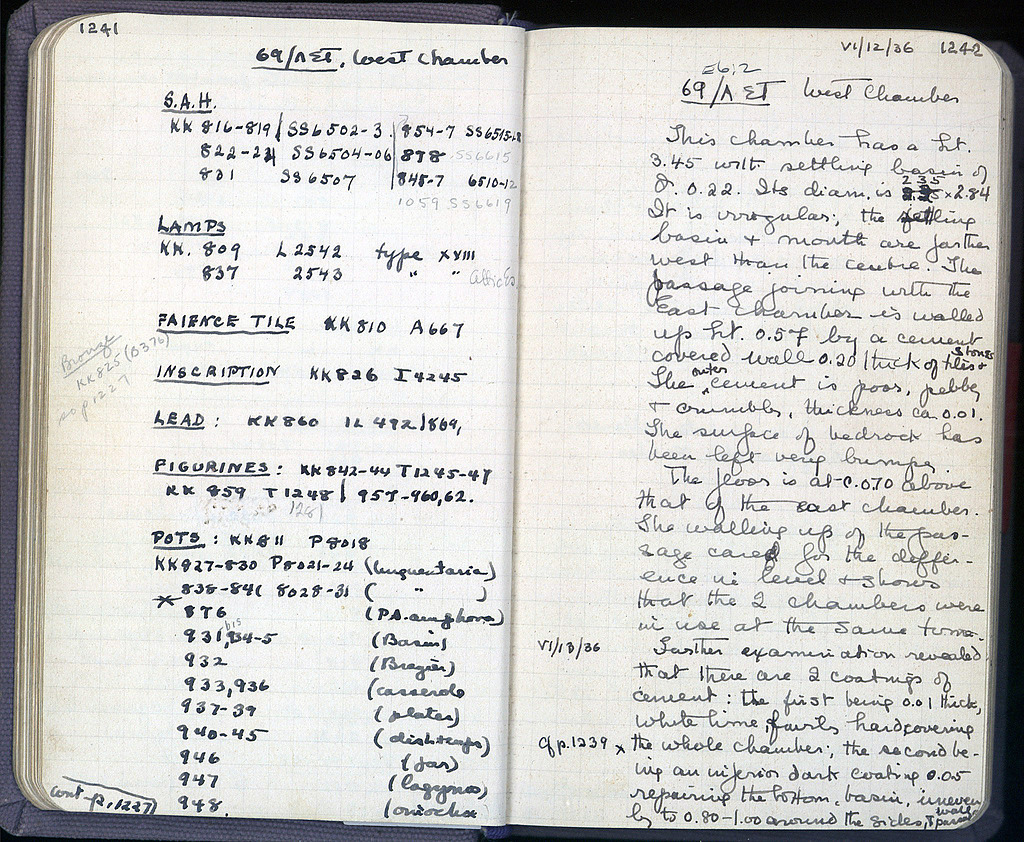 1241
69/ΛΣΤ, West Chamber
S.A.H.
KK 816-819 SS6502-3. 854-7 SS6515-18
822-24 SS6504-06 878 SS6615
831 SS6507 845-7 6510-12
1059 SS6619
LAMPS
KK. 809 L2542 type XVIII
837 2543 " "
FAIENCE TILE KK810 A667
Bronze
KK825 (B376)
p 1227
INSCRIPTION KK826 I 4245
LEAD: KK860 IL 492/869,
FIGURINES: KK842-44 T1245-47
KK 859 T1248 957-960,62.
1281
POTS: KK811 P8018
KK827-830 P8021-24 (Unguentaria)
838-841 8028-31 ( " )
876 (PA. amphora)
931,bis 34-5 (Basin)
932 (Brazier)
933,936 (casserole
937-39 (plates)
940-45 (dish+cups)
946 (jar)
947 (lagynos)
948. (oinochoe
cont. p. 1227
VI/12/36 1242
E6:2
69/ΛΣΤ West Chamber
This chamber has a ht.
3.45 with settling basin of
d. 0.22. Its diam. is 2.35 × 2.84
It is irregular; the settling
basin + mouth are farther
west than the centre. The
passage joining with the
East chamber is walled
up ht. 0.57 by a cement
covered wall 0.20 thick of tiles + stones
The outer cement is poor, pebbly
+ crumbly, thickness ca 0.01.
The surface of bedrock has
been left very bumpy.
The floor is at 0.070 above
that of the east chamber.
The walling up of the pas-
sage cared for the differ-
ence in level + shows
that the 2 chambers were
in use at the same time.
VI/13/36 Further examination revealed
that there are 2 coatings of
cement: the first being 0.01 thick,
white lime, fairly hard covering
cf p. 1239 × the whole chamber; the second be-
ing an inferior dark coating 0.05
repairing the bottom, basin, uneven
ly to 0.80-1.00 around the sides, + passage walls